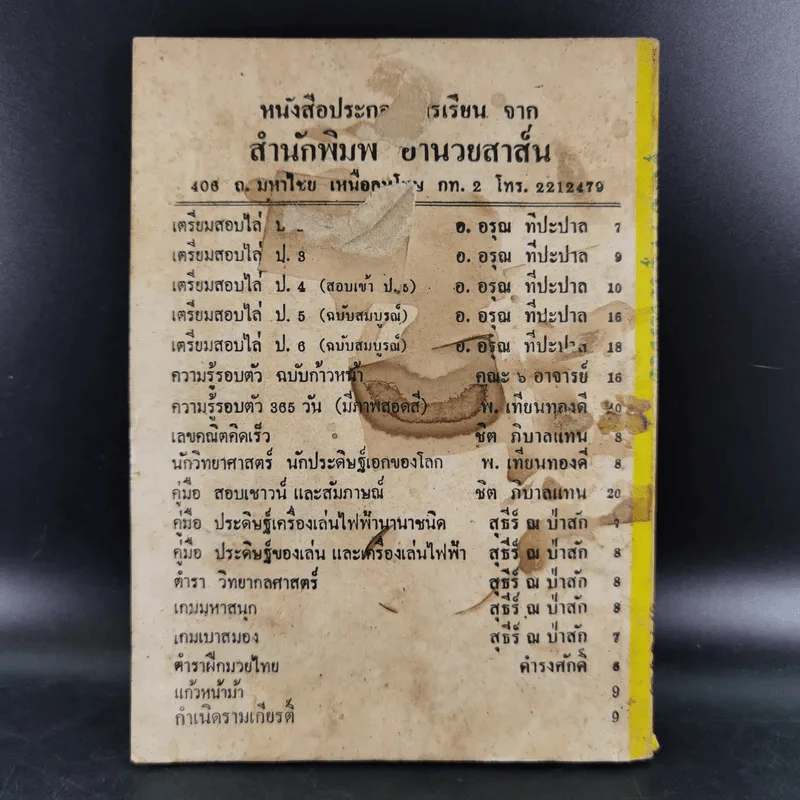 หนังสือประกอ รเรียน จาก
สำนักพิมพ อำนวยสาส์น
406 ถ. มหาไชย เหนือ กท. 2 โทร. 2212479
เตรียมสอบไล่ ป. อ. อรุณ ทีปะปาล 7
เตรียมสอบไล่ ป. 3 อ. อรุณ ทีปะปาล 9
เตรียมสอบไล่ ป. 4 (สอบเข้า ป. 5) อ. อรุณ ทีปะปาล 10
เตรียมสอบไล่ ป. 5 (ฉบับสมบูรณ์) อ. อรุณ ทีปะปาล 16
เตรียมสอบไล่ ป. 6 (ฉบับสมบูรณ์) อ. อรุณ ทีปะปาล 18
ความรู้รอบตัว ฉบับก้าวหน้า คณะ ๖ อาจารย์ 16
ความรู้รอบตัว 365 วัน (มีภาพสอดสี) พ. เทียนทองดี 20
เลขคณิตคิดเร็ว ชิต ภิบาลแทน 8
นักวิทยาศาสตร์ นักประดิษฐ์เอกของโลก พ. เทียนทองดี 8
คู่มือ สอบเชาวน์ และสัมภาษณ์ ชิต ภิบาลแทน 20
คู่มือ ประดิษฐ์เครื่องเล่นไฟฟ้านานาชนิด สุธีร์ ณ ป่าสัก
คู่มือ ประดิษฐ์ของเล่น และเครื่องเล่นไฟฟ้า สุธีร์ ณ ป่าสัก 8
ตำรา วิทยากลศาสตร์ สุธีร์ ณ ป่าสัก 8
เกมมหาสนุก สุธีร์ ณ ป่าสัก 8
เกมเบาสมอง สุธีร์ ณ ป่าสัก 7
ตำราฝึกมวยไทย ดำรงศักดิ์ 6
แก้วหน้าม้า 9
กำเนิดรามเกียรติ์ 9